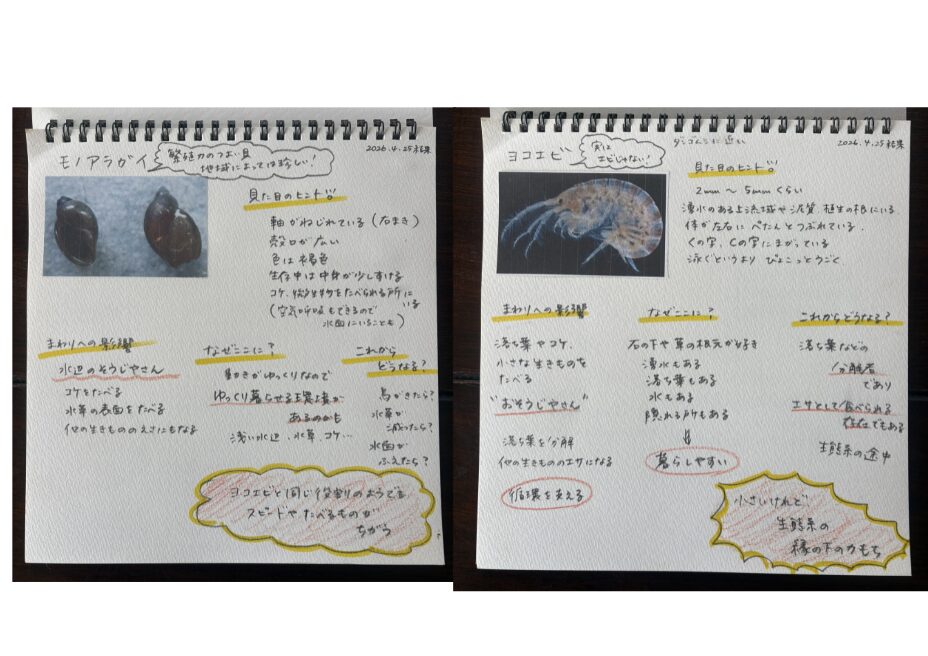 モノアラガイ
繁殖力のつよい貝
地域によっては珍しい!
2026.4.25 結果
見た目のヒント。
軸がねじれている(右まき)
殻口が広い
色は褐色
生存中は中身が少しすける
コケ、微生物をたべられる所に
いる
(空気呼吸もできるので
水面にいることも)
まわりへの影響
水辺のそうじやさん
コケをたべる
水草の表面をたべる
他の生きもののえさにもなる
なぜここに?
動きがゆっくりなので
ゆっくり暮らせる環境が
あるのかも
浅い水辺、水草、コケ…
これから
どうなる?
鳥がきたら?
水草が
減ったら?
水面が
ふえたら?
ヨコエビと同じ役割のようでも
スピードやたべるものが
ちがう
ヨコエビ
実は
エビじゃない!
ダンゴムシに近い
2026.4.25 結果
見た目のヒント。
2mm~5mmくらい
湧水のある上流域や泥質、植生の根にいる。
体が左右にぺたんとつぶれている。
くの字、Cの字にまがっている
泳ぐというより ぴょこっとうごく
まわりへの影響
落ち葉やコケ、
小さな生きものを
たべる
"おそうじやさん"
落ち葉を分解
他の生きもののエサになる
循環を支える
なぜここに?
石の下や草の根元が好き
湧水もある
落ち葉もある
水もある
隠れる所もある
⇓
暮らしやすい
これからどうなる?
落ち葉などの
分解者
であり
エサとして食べられる
存在でもある
生態系の途中
小さいけれど
生態系の
縁の下の力もち